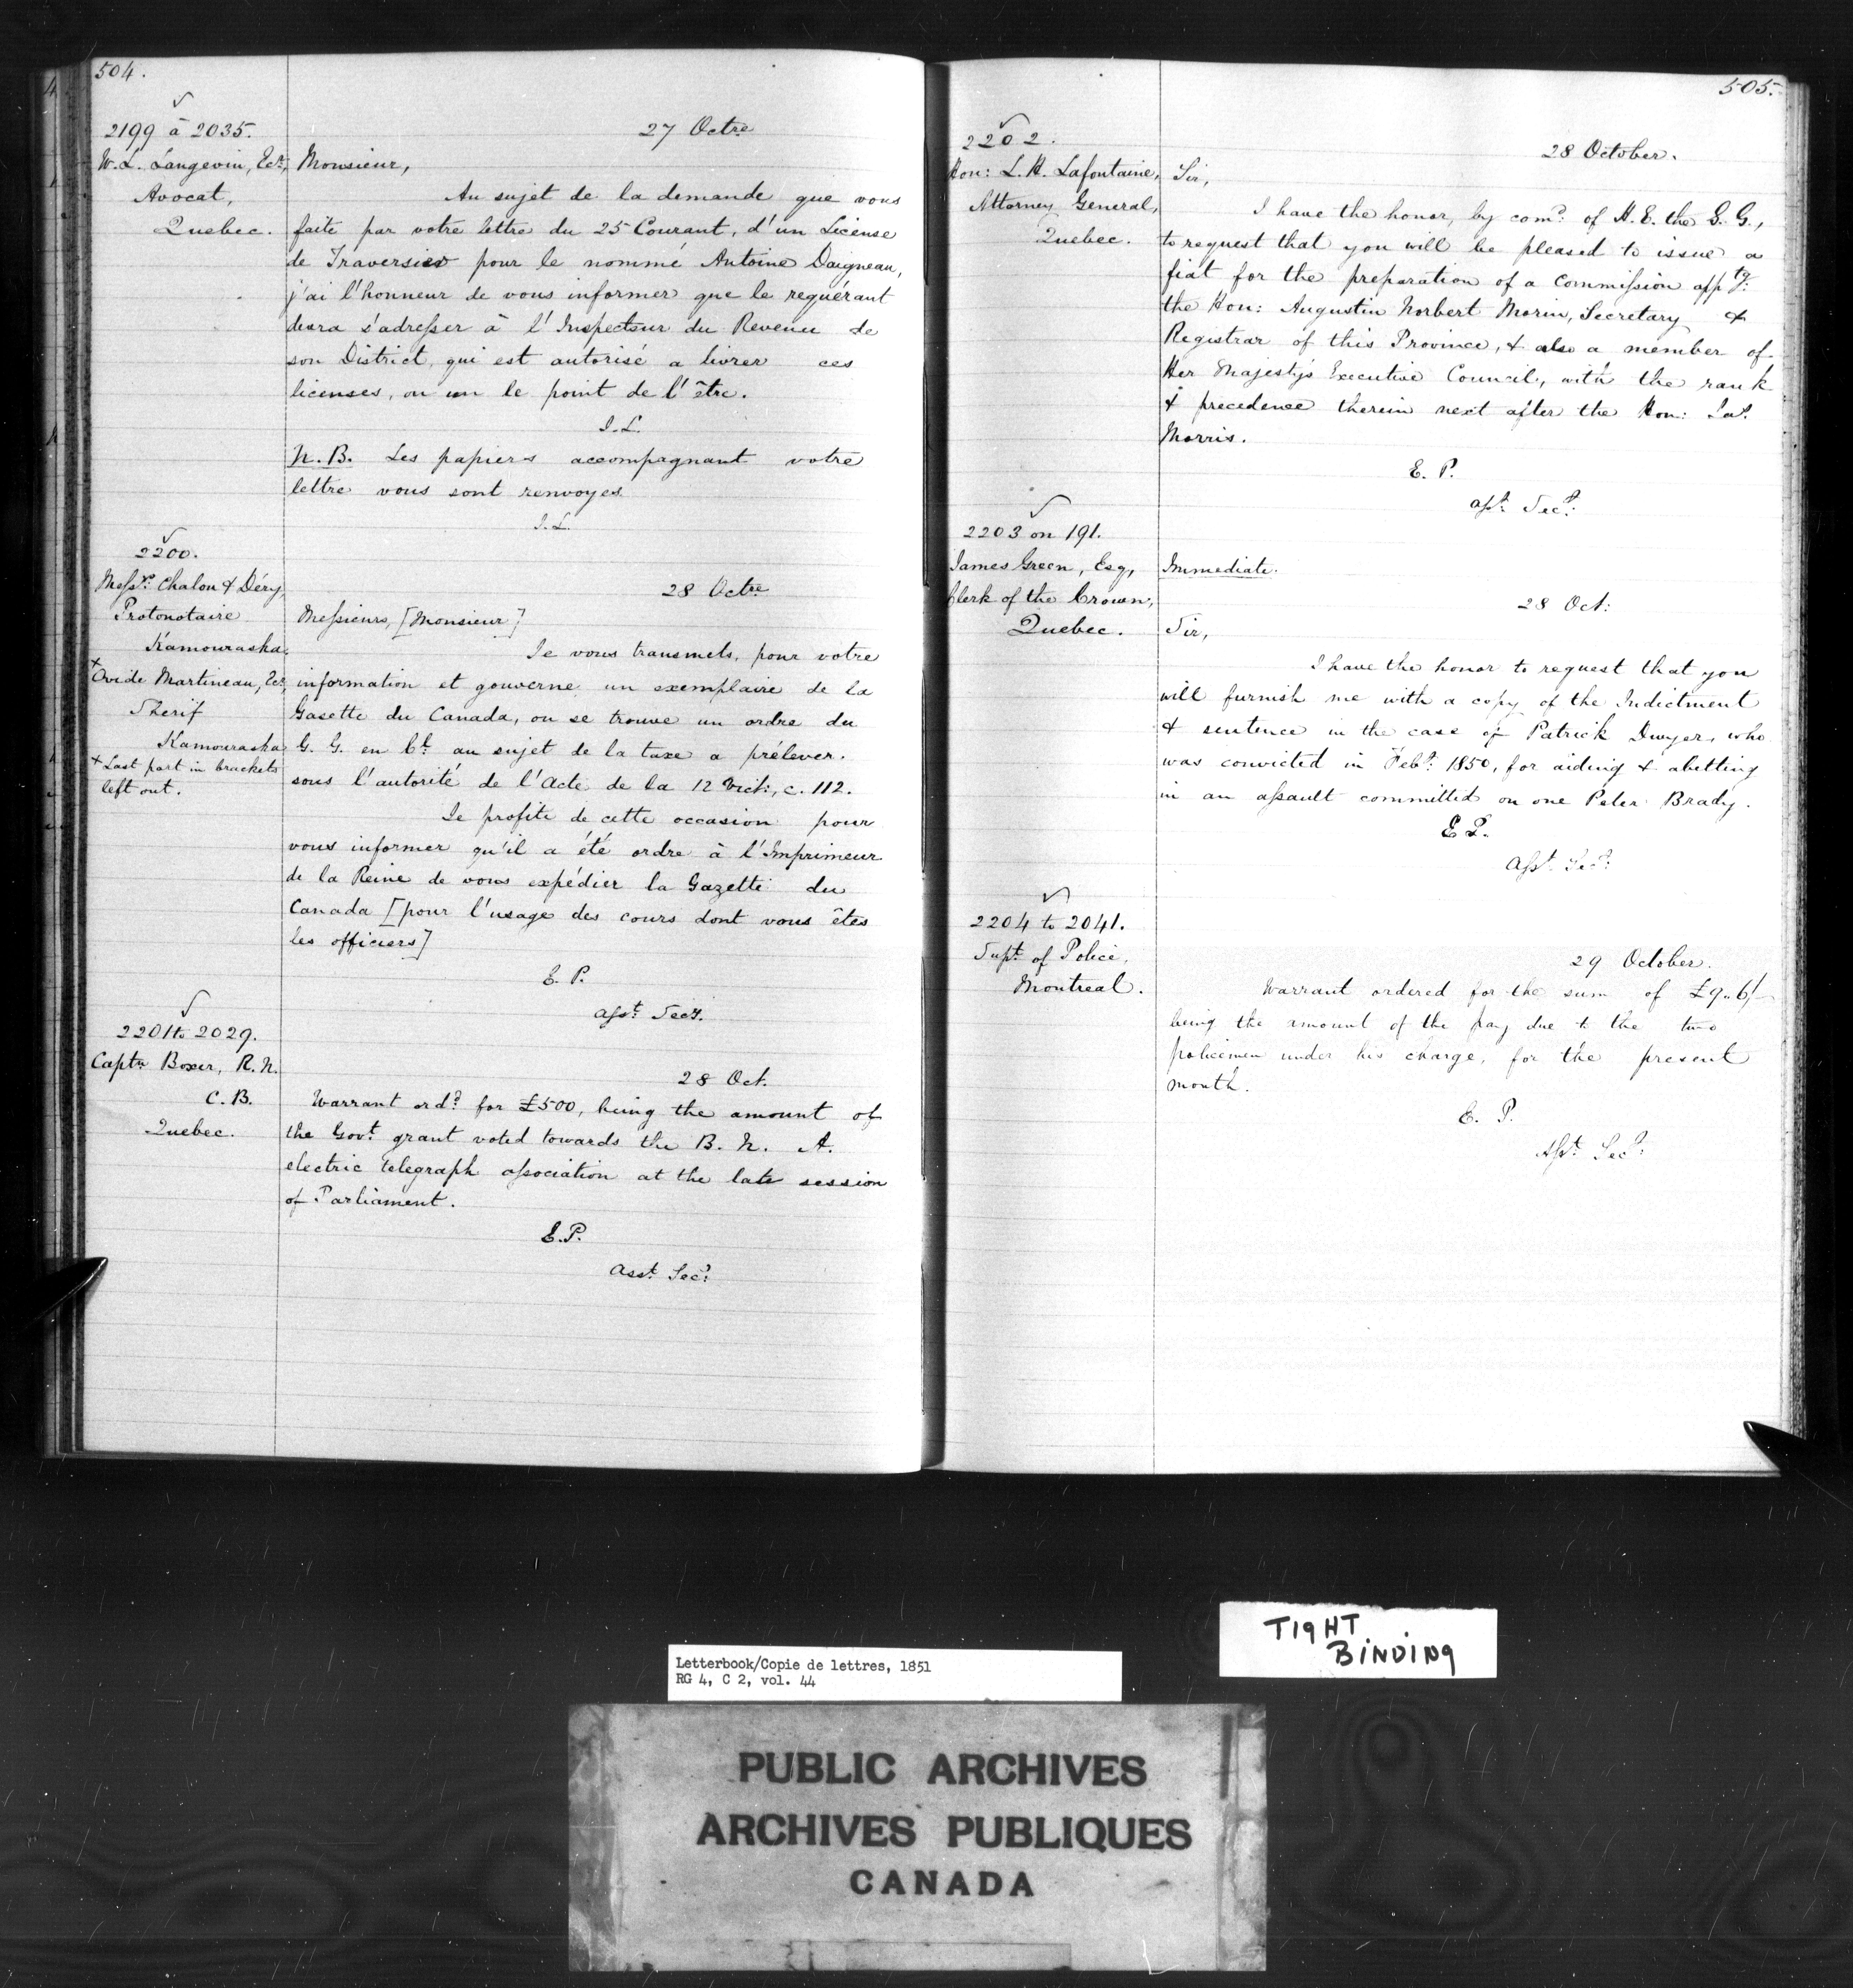 504.
2199 à 2035.
W. L. Langevin, Ecr,
Avocat,
Quebec.
27 Octre
Monsieur,
Au sujet de la demande que vous
faite par votre lettre du 25 Courant, d'un License
de Traversier pour le nommé Antoine Daigneau,
j'ai l'honneur de vous informer que le requérant
devra s'adresser à l'Inspecteur du Revenu de
son District, qui est autorisé a livrer ces
licenses, ou un le point de l'être.
I. L.
N.B. Les papiers accompagnant votre
lettre vous sont renvoyes.
I. L.
2200.
Messrs. Chalou & Déry,
Protonotaire
Kamouraska.
x
Ovide Martineau, Ecr,
Sherif
Kamouraska
x Last part in brackets
left out.
28 Octre
Messieurs, [Monsieur]
Je vous transmets, pour votre
information et gouverne un exemplaire de la
Gasette du Canada, ou se trouve un ordre du
G. G. en Cl. au sujet de la taxe a prélever.
sous l'autorité de l'Acte de la 12 Vict:, c. 112.
Je profite de cette occasion pour
vous informer qu'il a été ordre à l'Imprimeur
de la Reine de vous expédier la Gazette du
Canada [pour l'usage des cours dont vous êtes
les officiers]
E. P.
Asst. Secy.
2201 to 2029.
Captn Boxer, R. N.
C. B.
Quebec.
28 Oct.
Warrant ord? for £500, being the amount of
the Govt. grant voted towards the B. N. A.
electric telegraph association at the late session
of Parliament.
E. P.
Asst. Secy.
505.
2202.
Hon: L. H. Lafontaine,
Attorney General,
Quebec.
28 October.
Sir,
I have the honor, by comd. of H. E. the G. G.,
to request that you will be pleased to issue a
fiat for the preparation of a Commission apptg:
the Hon: Augustin Norbert Morin, Secretary &
Registrar of this Province, & also a member of
Her Majesty's Executive Council, with the rank
& precedence therein next after the Hon: Jas.
Morris.
E. P.
Asst. Secy.
2203 on 191.
James Green, Esq,
Clerk of the Crown,
Quebec.
Immediate.
28 Oct:
Sir,
I have the honor to request that you
will furnish me with a copy of the Indictment
& sentence in the case of Patrick Dwyer, who
was convicted in Feby. 1850, for aiding & abetting
in an assault committed on one Peter Brady.
E P.
Asst. Secy.
2204 to 2041.
Supt. of Police,
Montreal.
29 October.
Warrant ordered for the sum of £9..6/-
being the amount of the pay due to the two
policemen under his charge, for the present
month.
E. P.
Asst. Secy.
TIGHT
BINDING
Letterbook/Copie de lettres, 1851
RG 4, C 2, vol. 44
PUBLIC ARCHIVES
ARCHIVES PUBLIQUES
CANADA